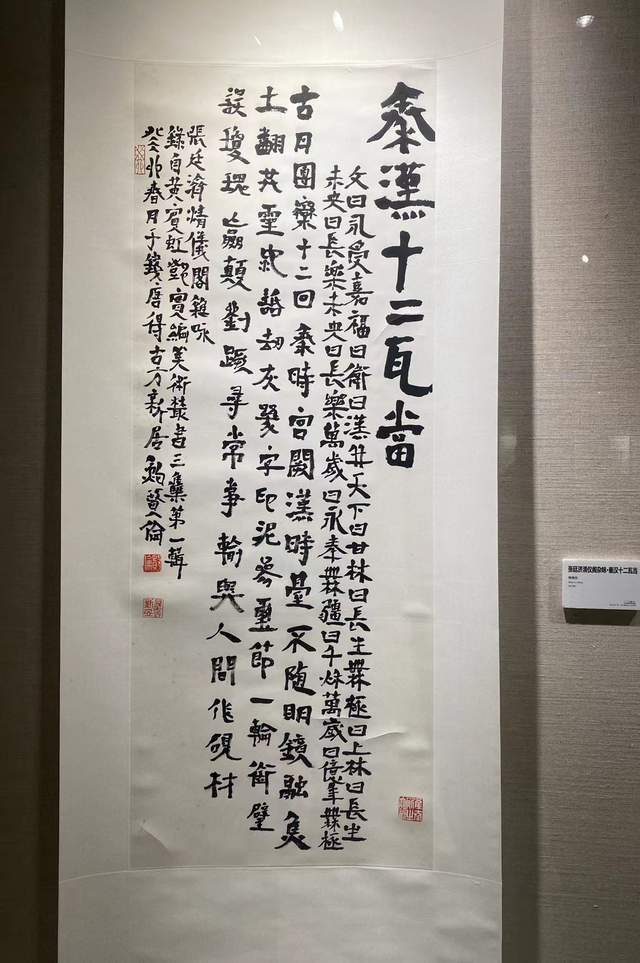 秦漢十二瓦當
文曰永受嘉福曰衛曰漢并天下曰甘林曰長生無極曰上林曰長生
未央曰長樂未央曰長樂萬歲曰永奉無疆曰千秋萬歲曰億年無極
古月團欒十二回秦時宮闕漢時臺不隨明鏡融
土翻共靈蛇話劫灰篆字印泥參璽節一輪銜璧
誤瓊瑰嬴顛劉蹶尋常事輸與人間作硯材
張廷濟清儀閣雜咏
錄自黃賓虹鄧實編美術叢書三集第一輯
癸卯春月于錢唐得古方新居鮑賢倫
张廷济清仪阁杂咏·秦汉十二瓦当